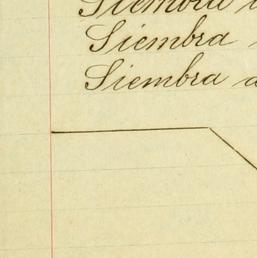 Siembra
Siembra
Siembra a